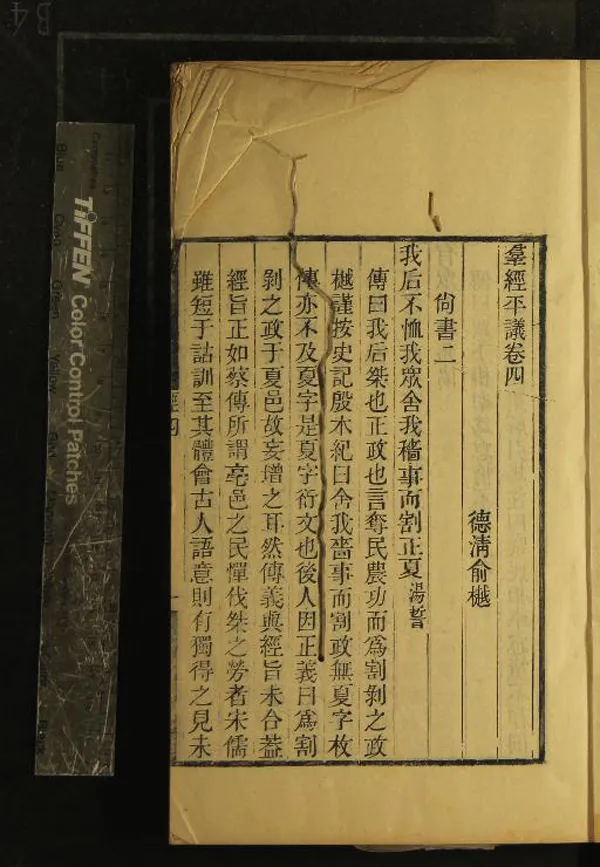 羣經平議卷四
德清俞樾
尙書二
我后不恤我衆舍我穡事而割正夏 湯誓
傳曰我后桀也正政也言奪民農功而爲割剝之政
樾謹按史記殷本紀曰舍我嗇事而割政無夏字枚
傳亦不及夏字是夏字衍文也後人因正義曰爲割
剝之政于夏邑故妄增之耳然傳義與經旨未合葢
經旨正如蔡傳所謂亳邑之民憚伐桀之勞者宋儒
雖短于詁訓至其體會古人語意則有獨得之見未
經四
B4
TIFFEN Color Control Patches
Blue
Cyan
Green
Yellow